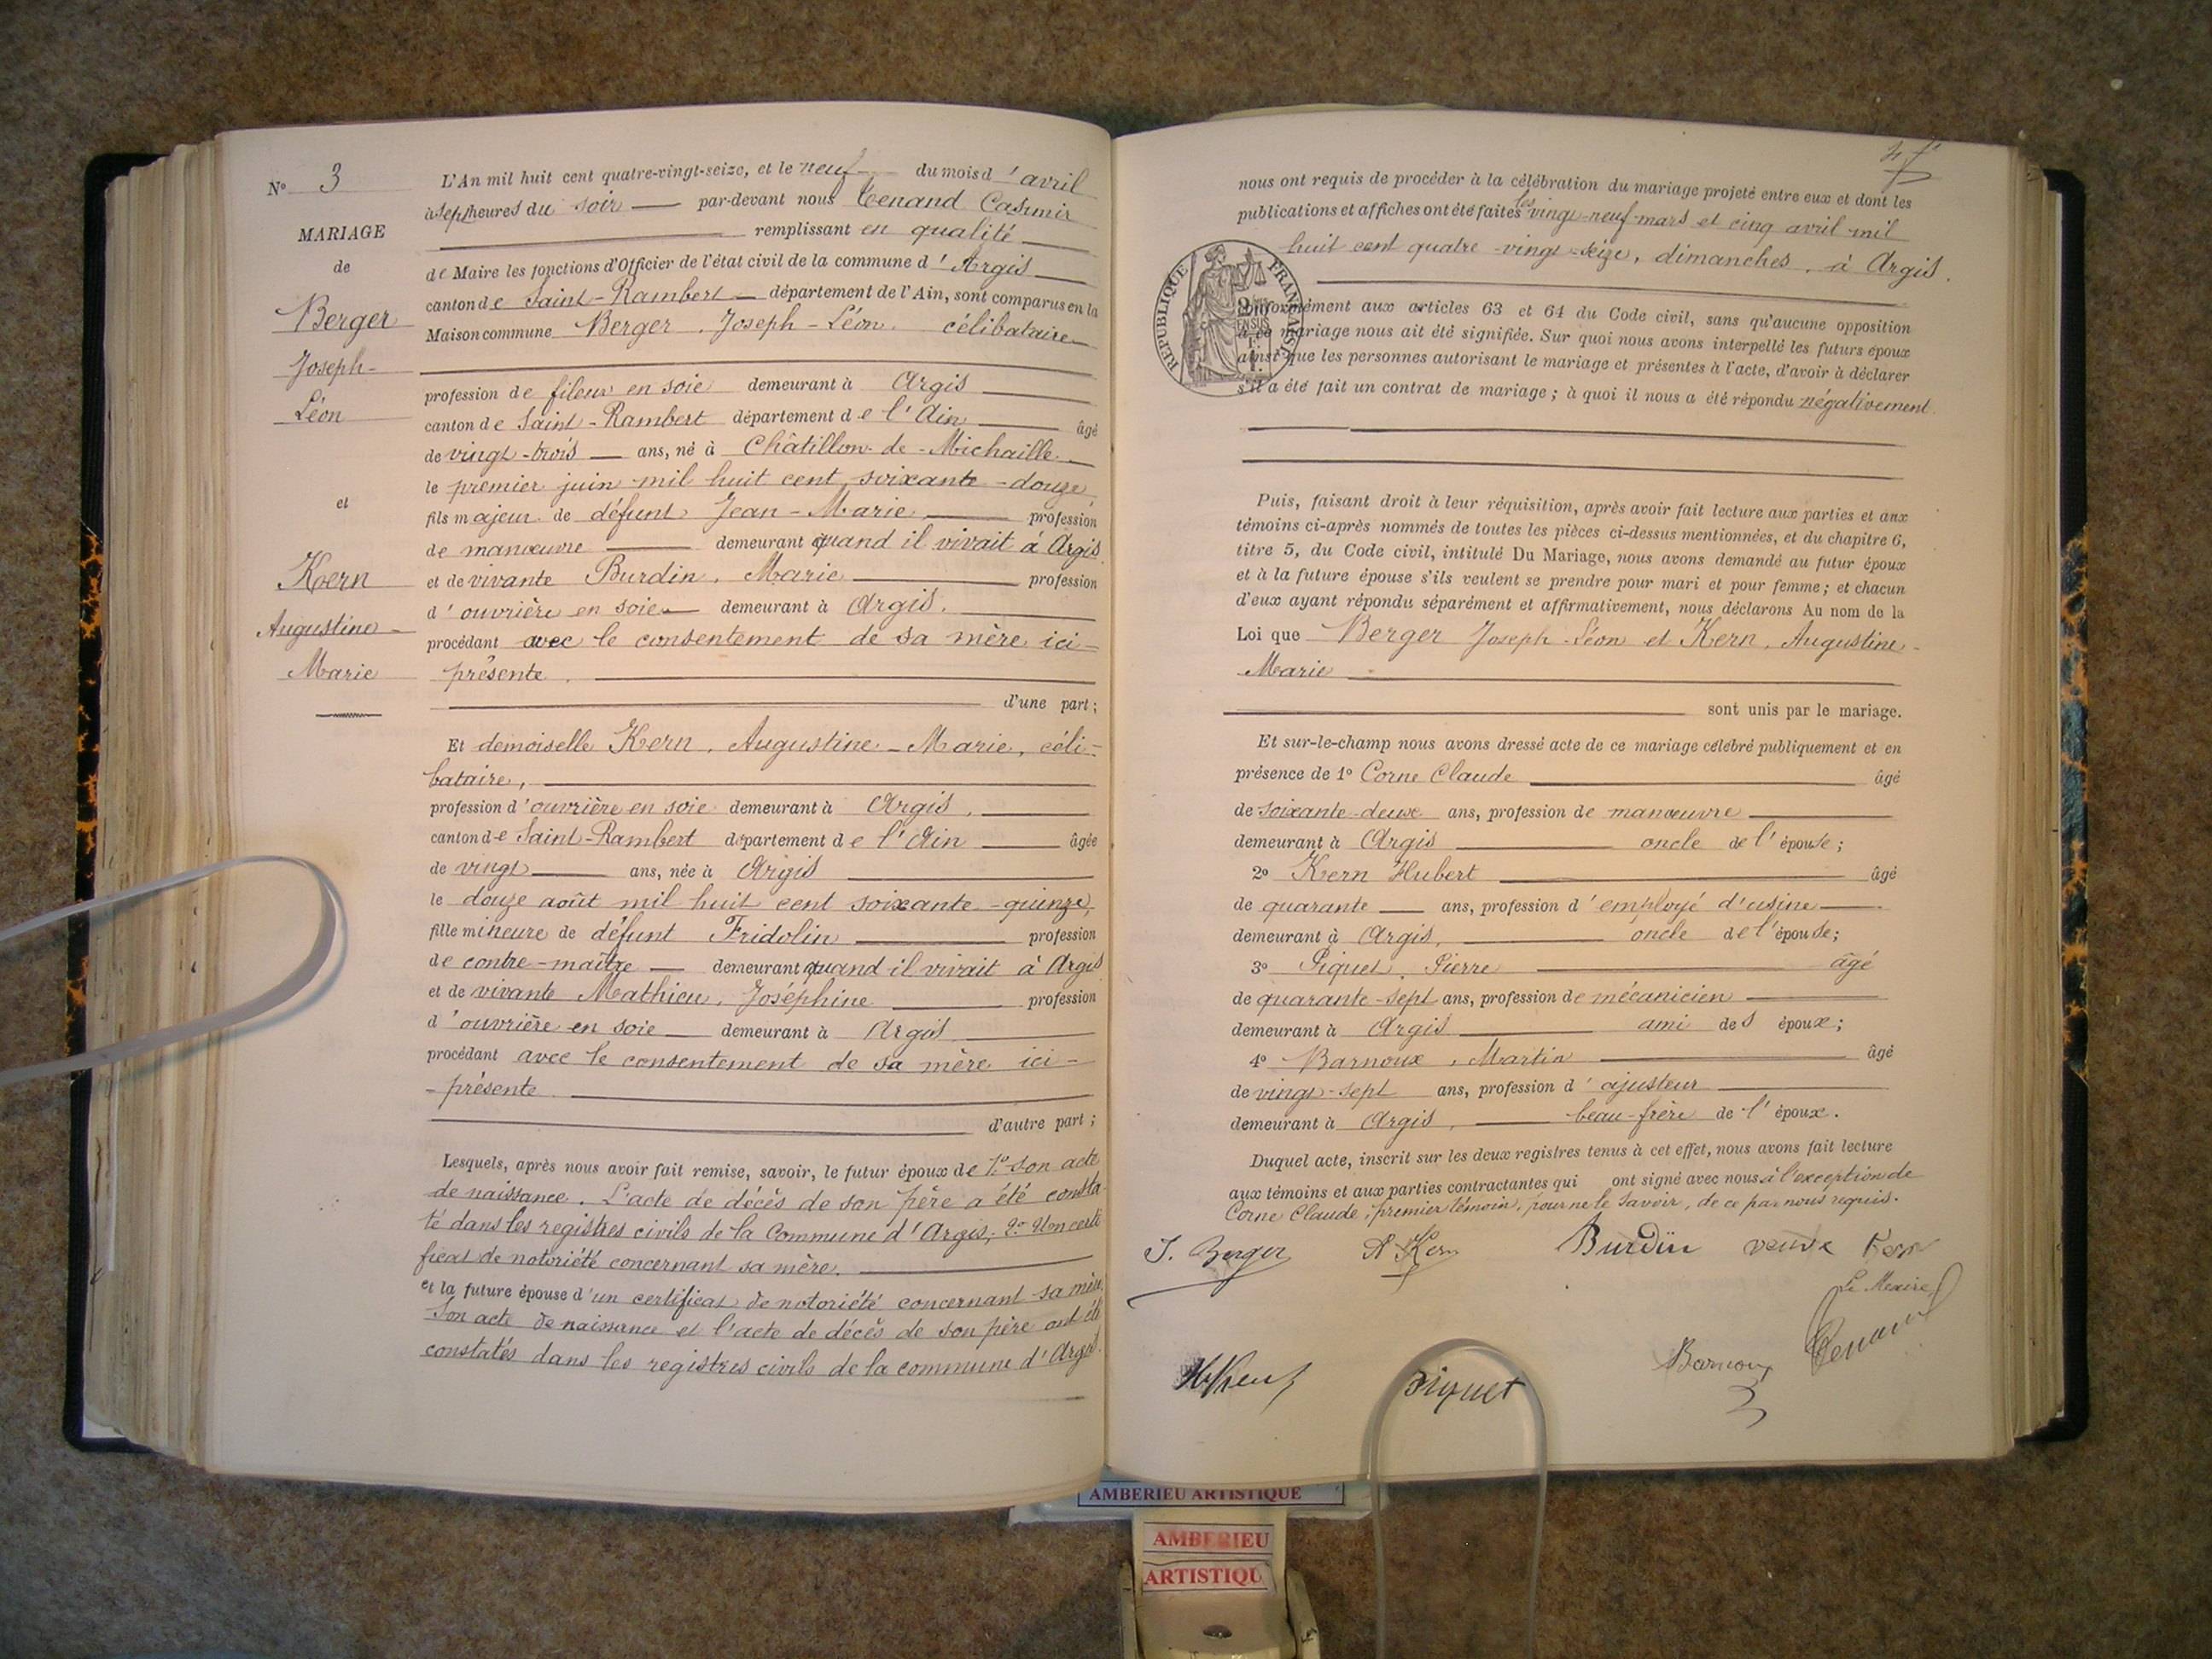 N° 3
MARIAGE
de
Berger
Joseph-
Léon
et
Kern
Augustine-
Marie
L'An mil huit cent quatre-vingt-seize, et le neuf du mois d'avril
à sept heures du soir par-devant nous Tenand Casimir
remplissant en qualité
de Maire les fonctions d'Officier de l'état civil de la commune d'Argis
canton de Saint-Rambert département de l'Ain, sont comparus en la
Maison commune Berger, Joseph-Léon, célibataire
profession de fileur en soie demeurant à Argis
canton de Saint-Rambert département de l'Ain âgé
de vingt-trois ans, né à Châtillon-de-Michaille
le premier juin mil huit cent soixante-douze,
fils majeur de défunt Jean-Marie profession
de manœuvre demeurant quand il vivait à Argis
et de vivante Burdin, Marie profession
d'ouvrière en soie demeurant à Argis.
procédant avec le consentement de sa mère ici-
présente.
d'une part;
Et demoiselle Kern, Augustine-Marie, céli-
bataire,
profession d'ouvrière en soie demeurant à Argis,
canton de Saint-Rambert département de l'Ain âgée
de vingt ans, née à Argis
le douze août mil huit cent soixante-quinze,
fille mineure de défunt Fridolin profession
de contre-maître demeurant quand il vivait à Argis
et de vivante Mathieu, Joséphine profession
d'ouvrière en soie demeurant à Argis
procédant avec le consentement de sa mère ici-
-présente
d'autre part;
Lesquels, après nous avoir fait remise, savoir, le futur époux de 1° son acte
de naissance. L'acte de décès de son père a été consta-
té dans les registres civils de la Commune d'Argis; 2° Un certi
ficat de notoriété concernant sa mère.
et la future épouse d'un certificat de notoriété concernant sa mère.
Son acte de naissance et l'acte de décès de son père ont été
constatés dans les registres civils de la commune d'Argis.
nous ont requis de procéder à la célébration du mariage projeté entre eux et dont les
publications et affiches ont été faites les vingt-neuf mars et cinq avril mil
huit cent quatre-vingt-seize, dimanches, à Argis.
RÉPUBLIQUE FRANÇAISE
conformément aux articles 63 et 64 du Code civil, sans qu'aucune opposition
à ce mariage nous ait été signifiée. Sur quoi nous avons interpellé les futurs époux
ainsi que les personnes autorisant le mariage et présentes à l'acte, d'avoir à déclarer
s'il a été fait un contrat de mariage; à quoi il nous a été répondu négativement.
Puis, faisant droit à leur réquisition, après avoir fait lecture aux parties et aux
témoins ci-après nommés de toutes les pièces ci-dessus mentionnées, et du chapitre 6,
titre 5, du Code civil, intitulé Du Mariage, nous avons demandé au futur époux
et à la future épouse s'ils veulent se prendre pour mari et pour femme; et chacun
d'eux ayant répondu séparément et affirmativement, nous déclarons Au nom de la
Loi que Berger Joseph-Léon et Kern, Augustine-
Marie
sont unis par le mariage.
Et sur-le-champ nous avons dressé acte de ce mariage célébré publiquement et en
présence de 1° Corne Claude âgé
de soixante-deux ans, profession de manœuvre
demeurant à Argis oncle de l'épouse;
2° Kern Hubert âgé
de quarante ans, profession d'employé d'usine
demeurant à Argis, oncle de l'épouse;
3° Piquet, Pierre âgé
de quarante-sept ans, profession de mécanicien
demeurant à Argis ami des époux;
4° Barnoux, Martin âgé
de vingt-sept ans, profession d'ajusteur
demeurant à Argis, beau-frère de l'époux.
Duquel acte, inscrit sur les deux registres tenus à cet effet, nous avons fait lecture
aux témoins et aux parties contractantes qui ont signé avec nous à l'exception de
Corne Claude, premier témoin, pour ne le savoir, de ce par nous requis.
J. Berger A Kern Burdin veuve Kern
Le Maire
Tenand
H Kern Piquet Barnoux
AMBERIEU ARTISTIQUE
AMBERIEU
ARTISTIQU